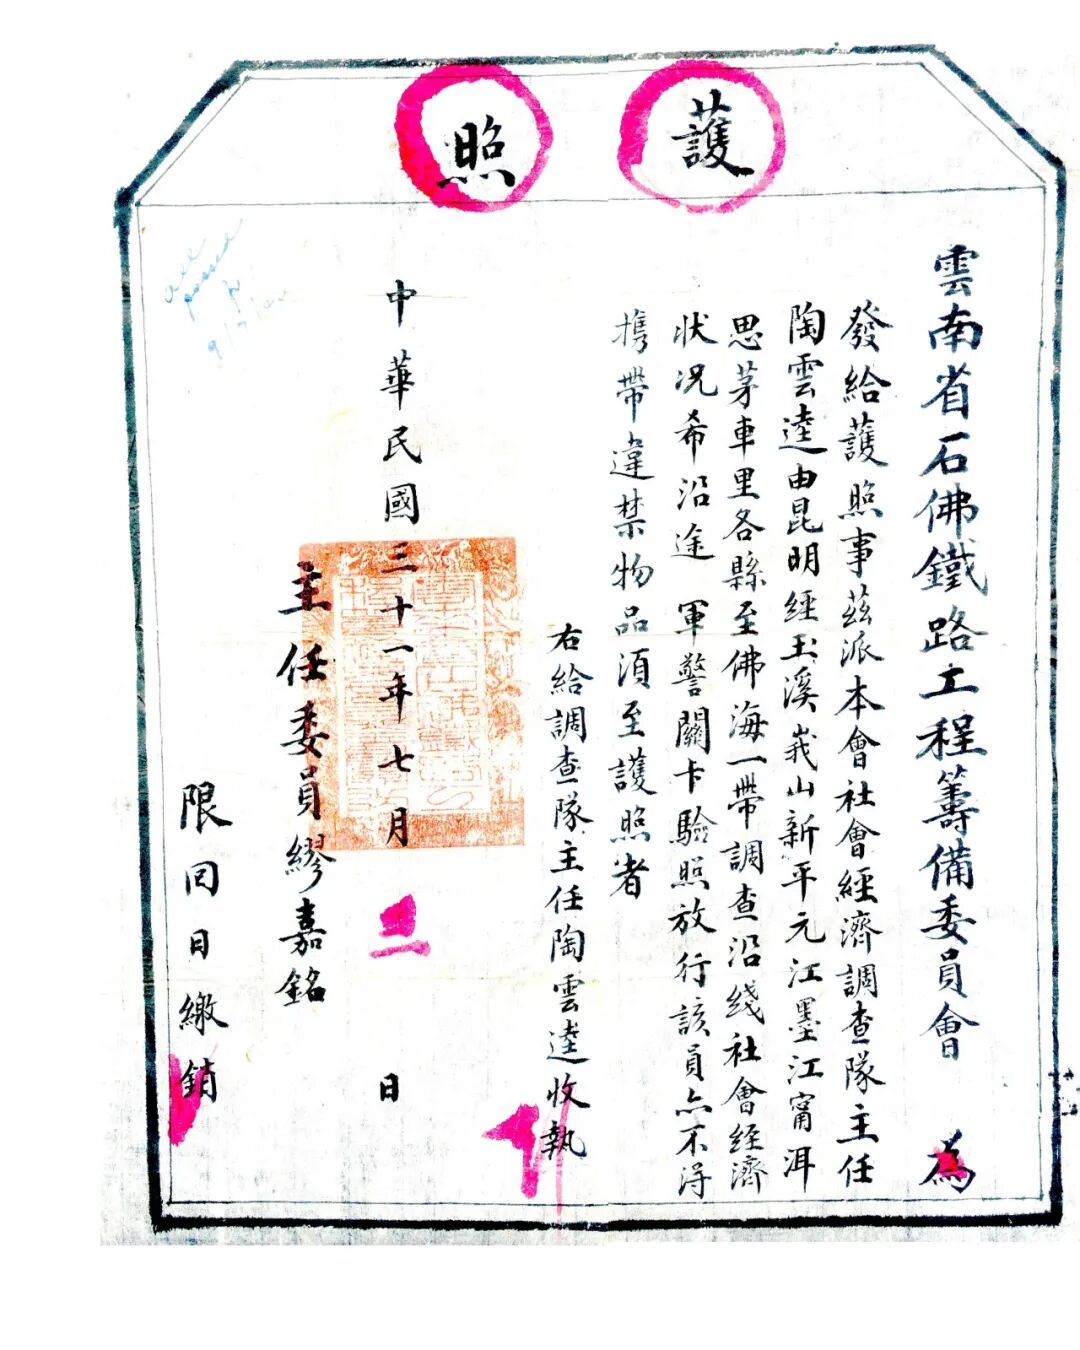 護照
雲南省石佛鐵路工程籌備委員會　為
發給護照事茲派本會社會經濟調查隊主任
陶雲逵由昆明經玉溪峩山新平元江墨江甯洱
思茅車里各縣至佛海一帶調查沿綫社會經濟
狀况希沿途　軍警關卡驗照放行該員亦不得
携帶違禁物品須至護照者
右給調查隊主任陶雲逵收執
中華民國三十一年七月三日
主任委員繆嘉銘
限回日繳銷